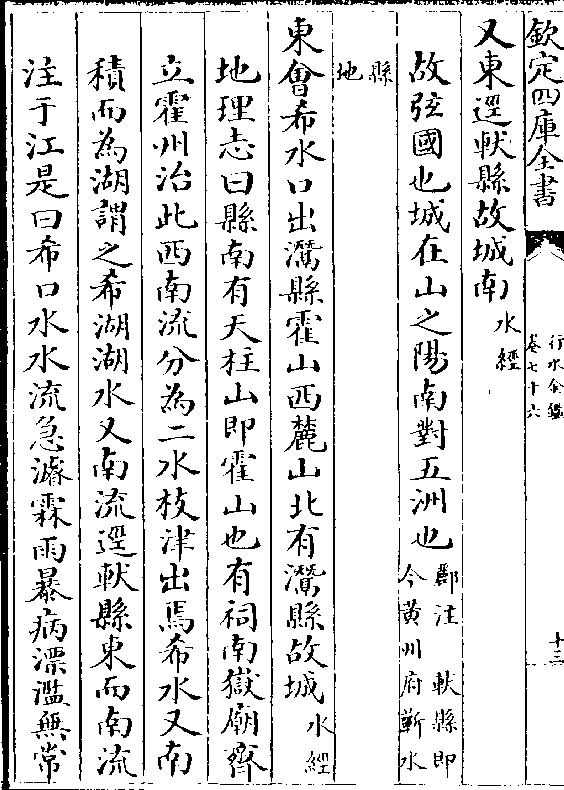 欽定四庫全書
行水金鑑
卷七十六
十三
又東逕軑縣故城南水經
故弦國也城在山之陽南對五洲也酈注 軑縣即今黄州府蘄水
縣地
東會希水口出灊縣霍山西麓山北有灊縣故城水經
地理志曰縣南有天柱山即霍山也有祠南嶽廟齊
立霍州治此西南流分為二水枝津出焉希水又南
積而為湖謂之希湖湖水又南流逕軑縣東而南流
注于江是曰希口水水流急濬霖雨暴病漂濫無常